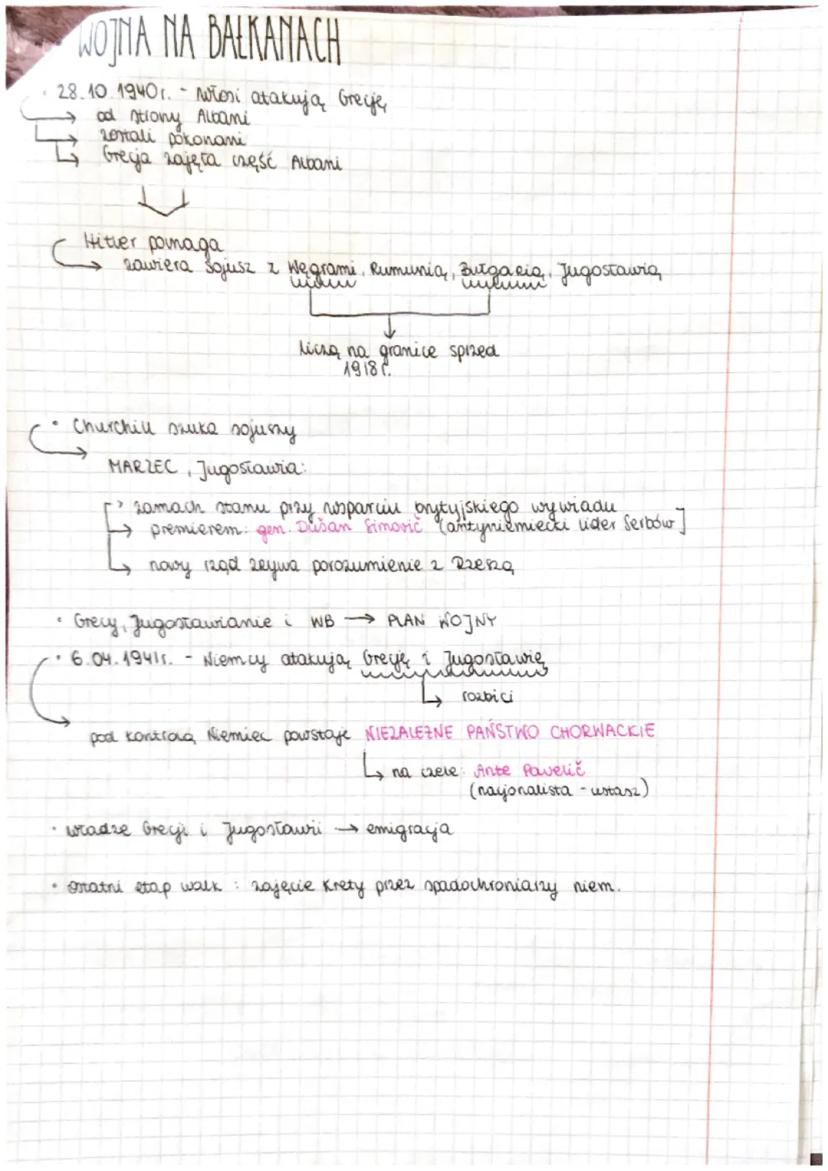 WOJNA NA BAŁKANACH
28.10.1940r. - Włosi atakują Grecję
od strony Albani
zostali pokonani
Grecja zajęła część Albani
Hitler pomaga
zawiera sojusz z Węgrami, Rumunią, Bułgarią, Jugosławią
liczą na granice sprzed
1918r.
Churchill szuka sojuszy
MARZEC, Jugosławia:
zamach stanu przy wsparciu brytyjskiego wywiadu
premierem: gen. Dušan Simović (antyniemiecki lider Serbów]
nowy rząd zrywa porozumienie z Rzeszą
Grecy, Jugosławianie i WB → PLAN WOJNY
6.04.1941r. - Niemcy atakują Grecję i Jugosławię
rozbici
pod kontrolą Niemiec powstaje NIEZALEŻNE PAŃSTWO CHORWACKIE
na czele: Ante Pavelič
(nacjonalista - ustasz)
władze Grecji i Jugosławii → emigracja
ostatni etap walk : zajęcie Krety przez spadochroniarzy niem.